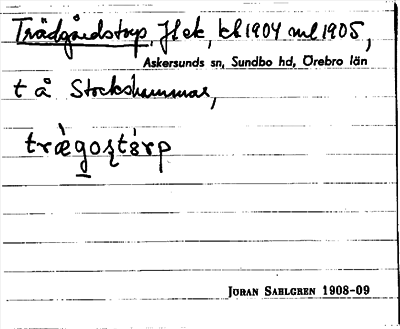 Trädgårdstorp, Jl ek, kb 1904 ml 1905,
Askersunds sn, Sundbo hd, Örebro län
t å Stockshammar,
JÖRAN SAHLGREN 1908-09